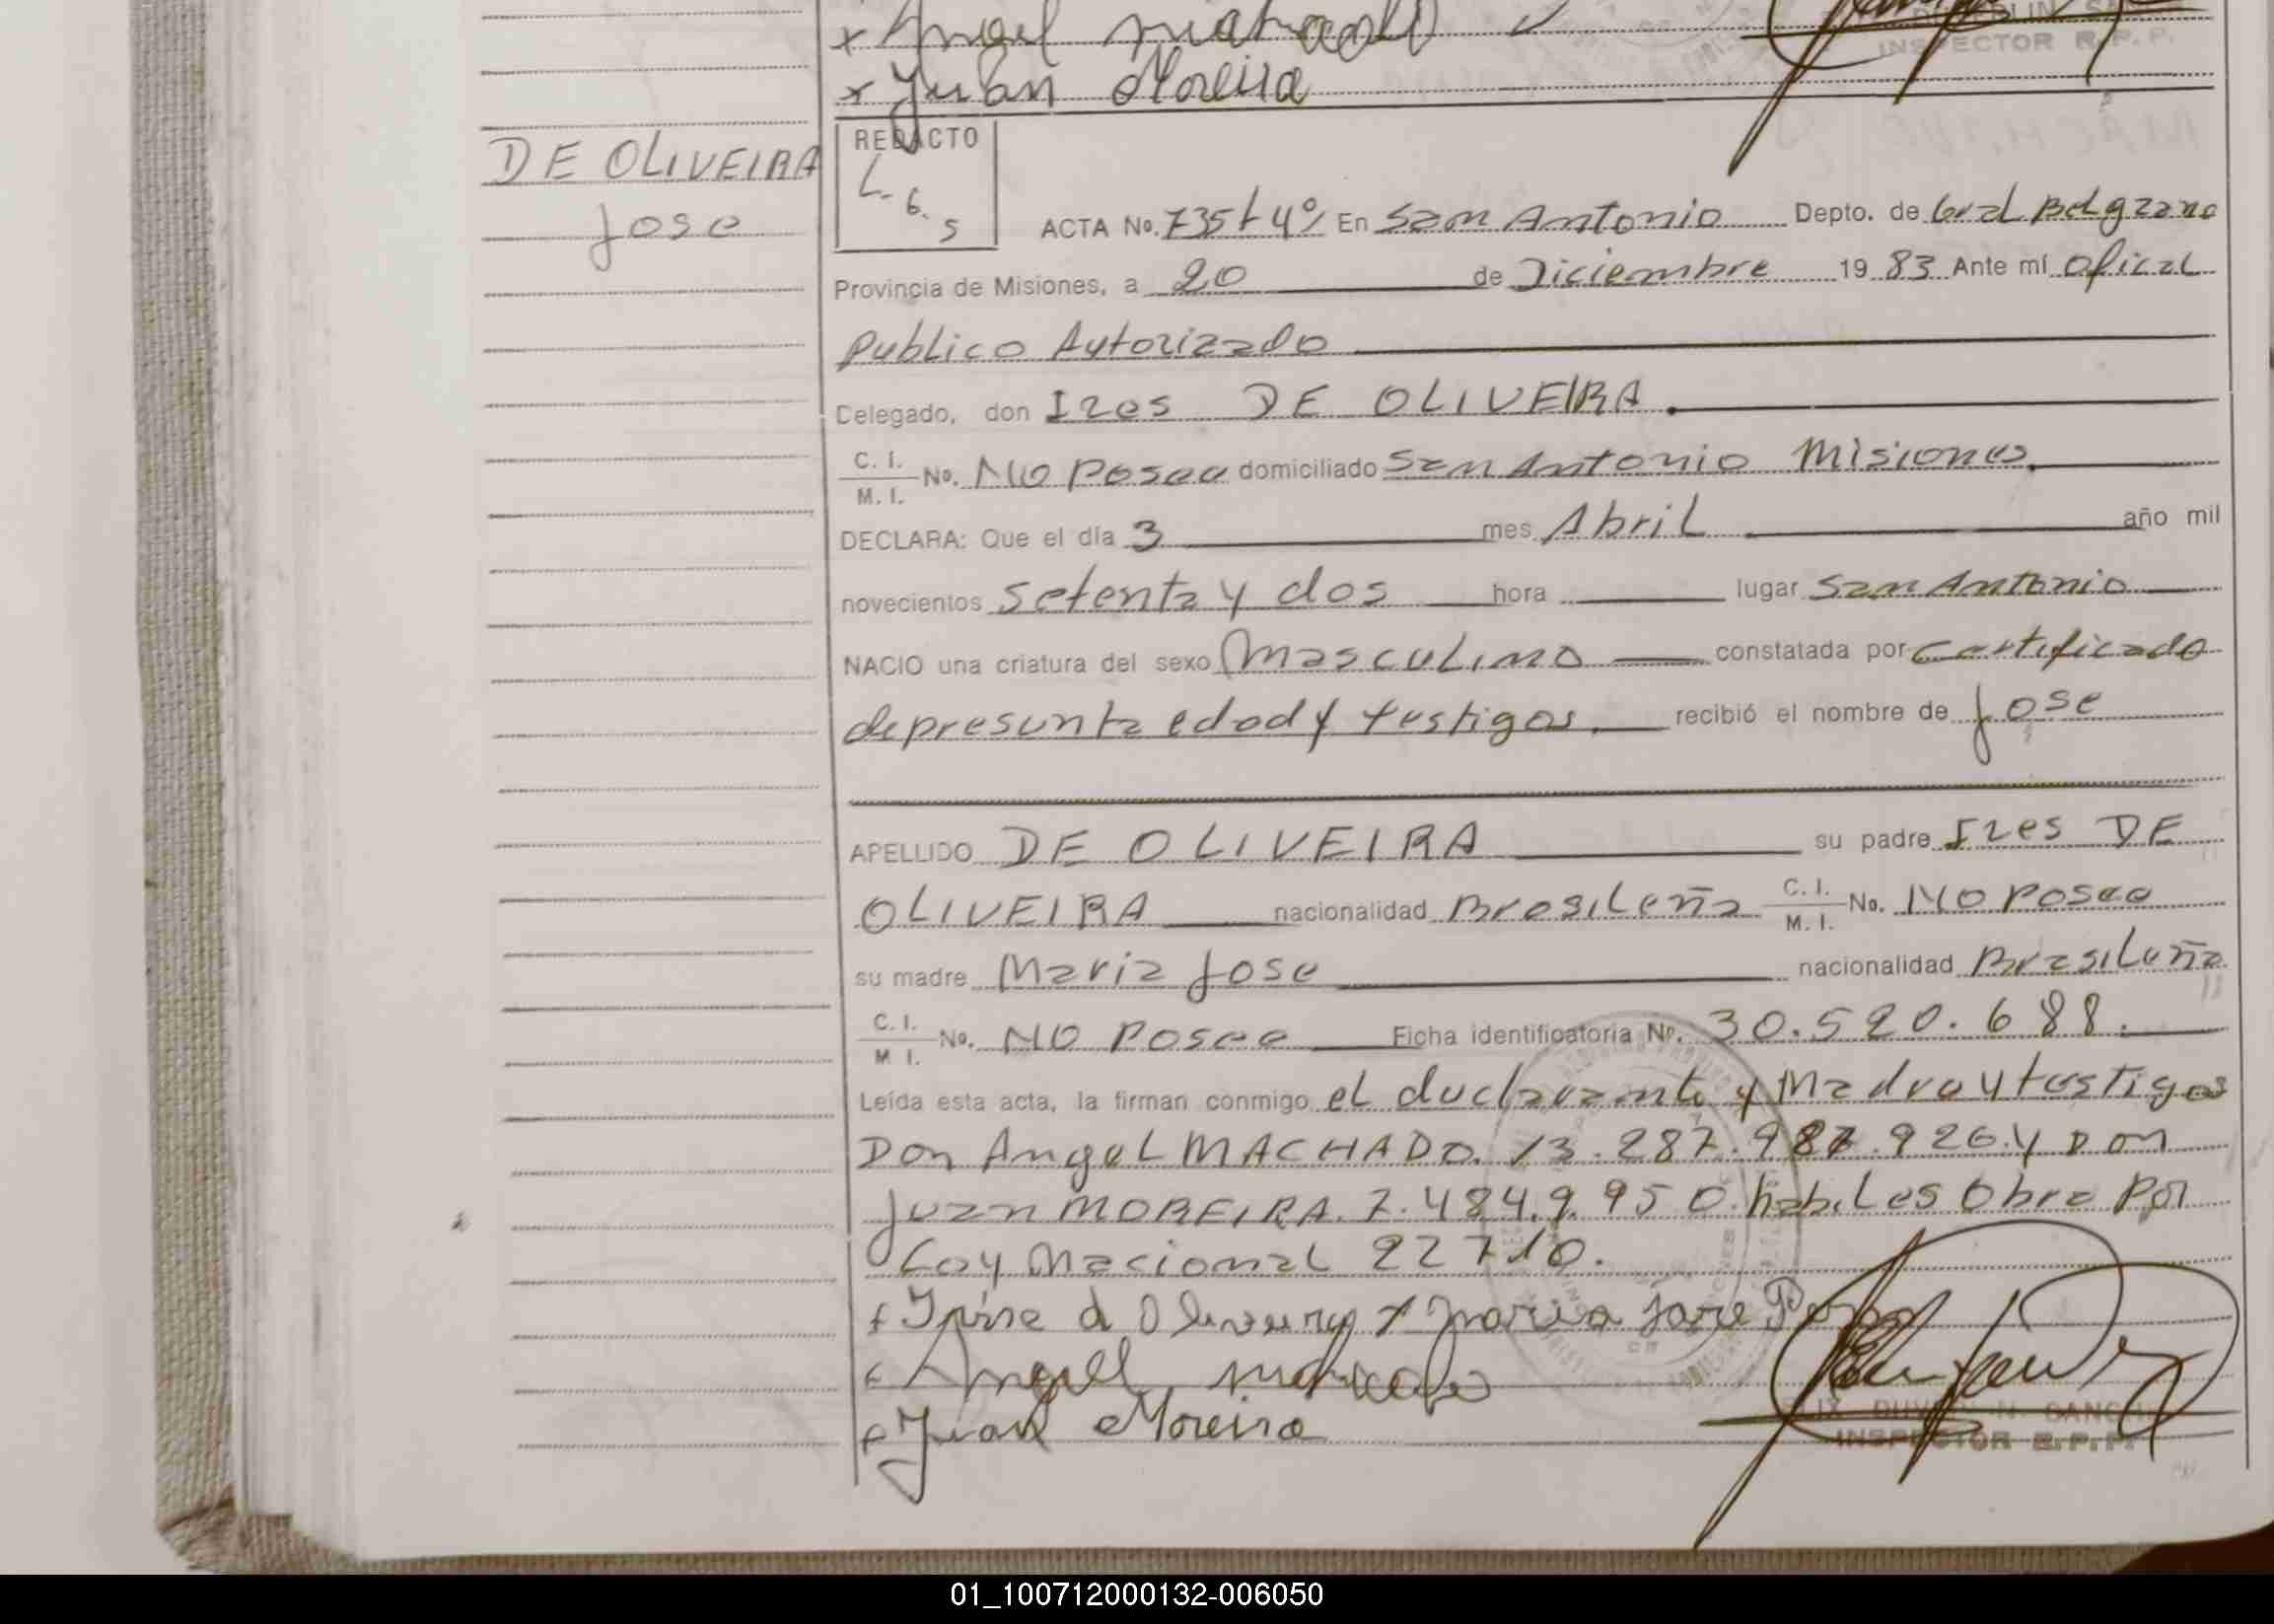 x Angel Machado
INSPECTOR R.P.P.
x Juan Moreira
DE OLIVEIRA
Jose
REDACTO
L. G. S
ACTA No. 735 t 4º/ En San Antonio Depto. de Gral Belgrano
Provincia de Misiones, a 20 de Diciembre 19 83 Ante mí Oficial
Publico Autorizado
Celegado, don Ires DE OLIVEIRA.
C. I. / M. I. No. No Posee domiciliado San Antonio Misiones.
DECLARA: Que el día 3 mes Abril año mil
novecientos setenta y dos hora lugar San Antonio
NACIO una criatura del sexo Masculino constatada por Certificado
de presunta edad y testigos. recibió el nombre de Jose
APELLIDO DE OLIVEIRA su padre Ires DE
OLIVEIRA nacionalidad Brasileña C. I. / M. I. No. No Posee
su madre Maria Jose nacionalidad Brasileña
C. I. / M. I. No. No Posee Ficha identificatoria Nº. 30.520.688.
Leída esta acta, la firman conmigo el declarante y Madre y testigos
Don Angel MACHADO. 13.287.987.926. y Don
Juan MOREIRA. 7.484.9.950. habiles Obra Por
Ley Nacional 22710.
Maria Jose
Angel Machado
Juan Moreira
INSPECTOR R.P.P.
01_100712000132-006050